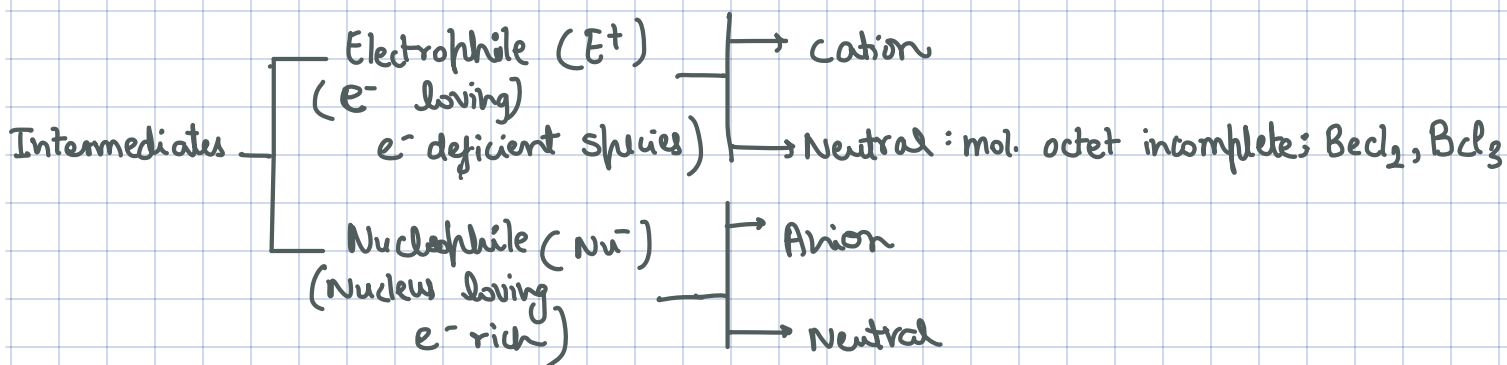 Electrophile (E⁺)
(e⁻ loving)
e⁻ deficient species)
cation
Neutral : mol. octet incomplete; BeCl₂, BCl₃
Intermediates
Nucleophile (Nu⁻)
(Nucleus loving
e⁻ rich)
Anion
Neutral